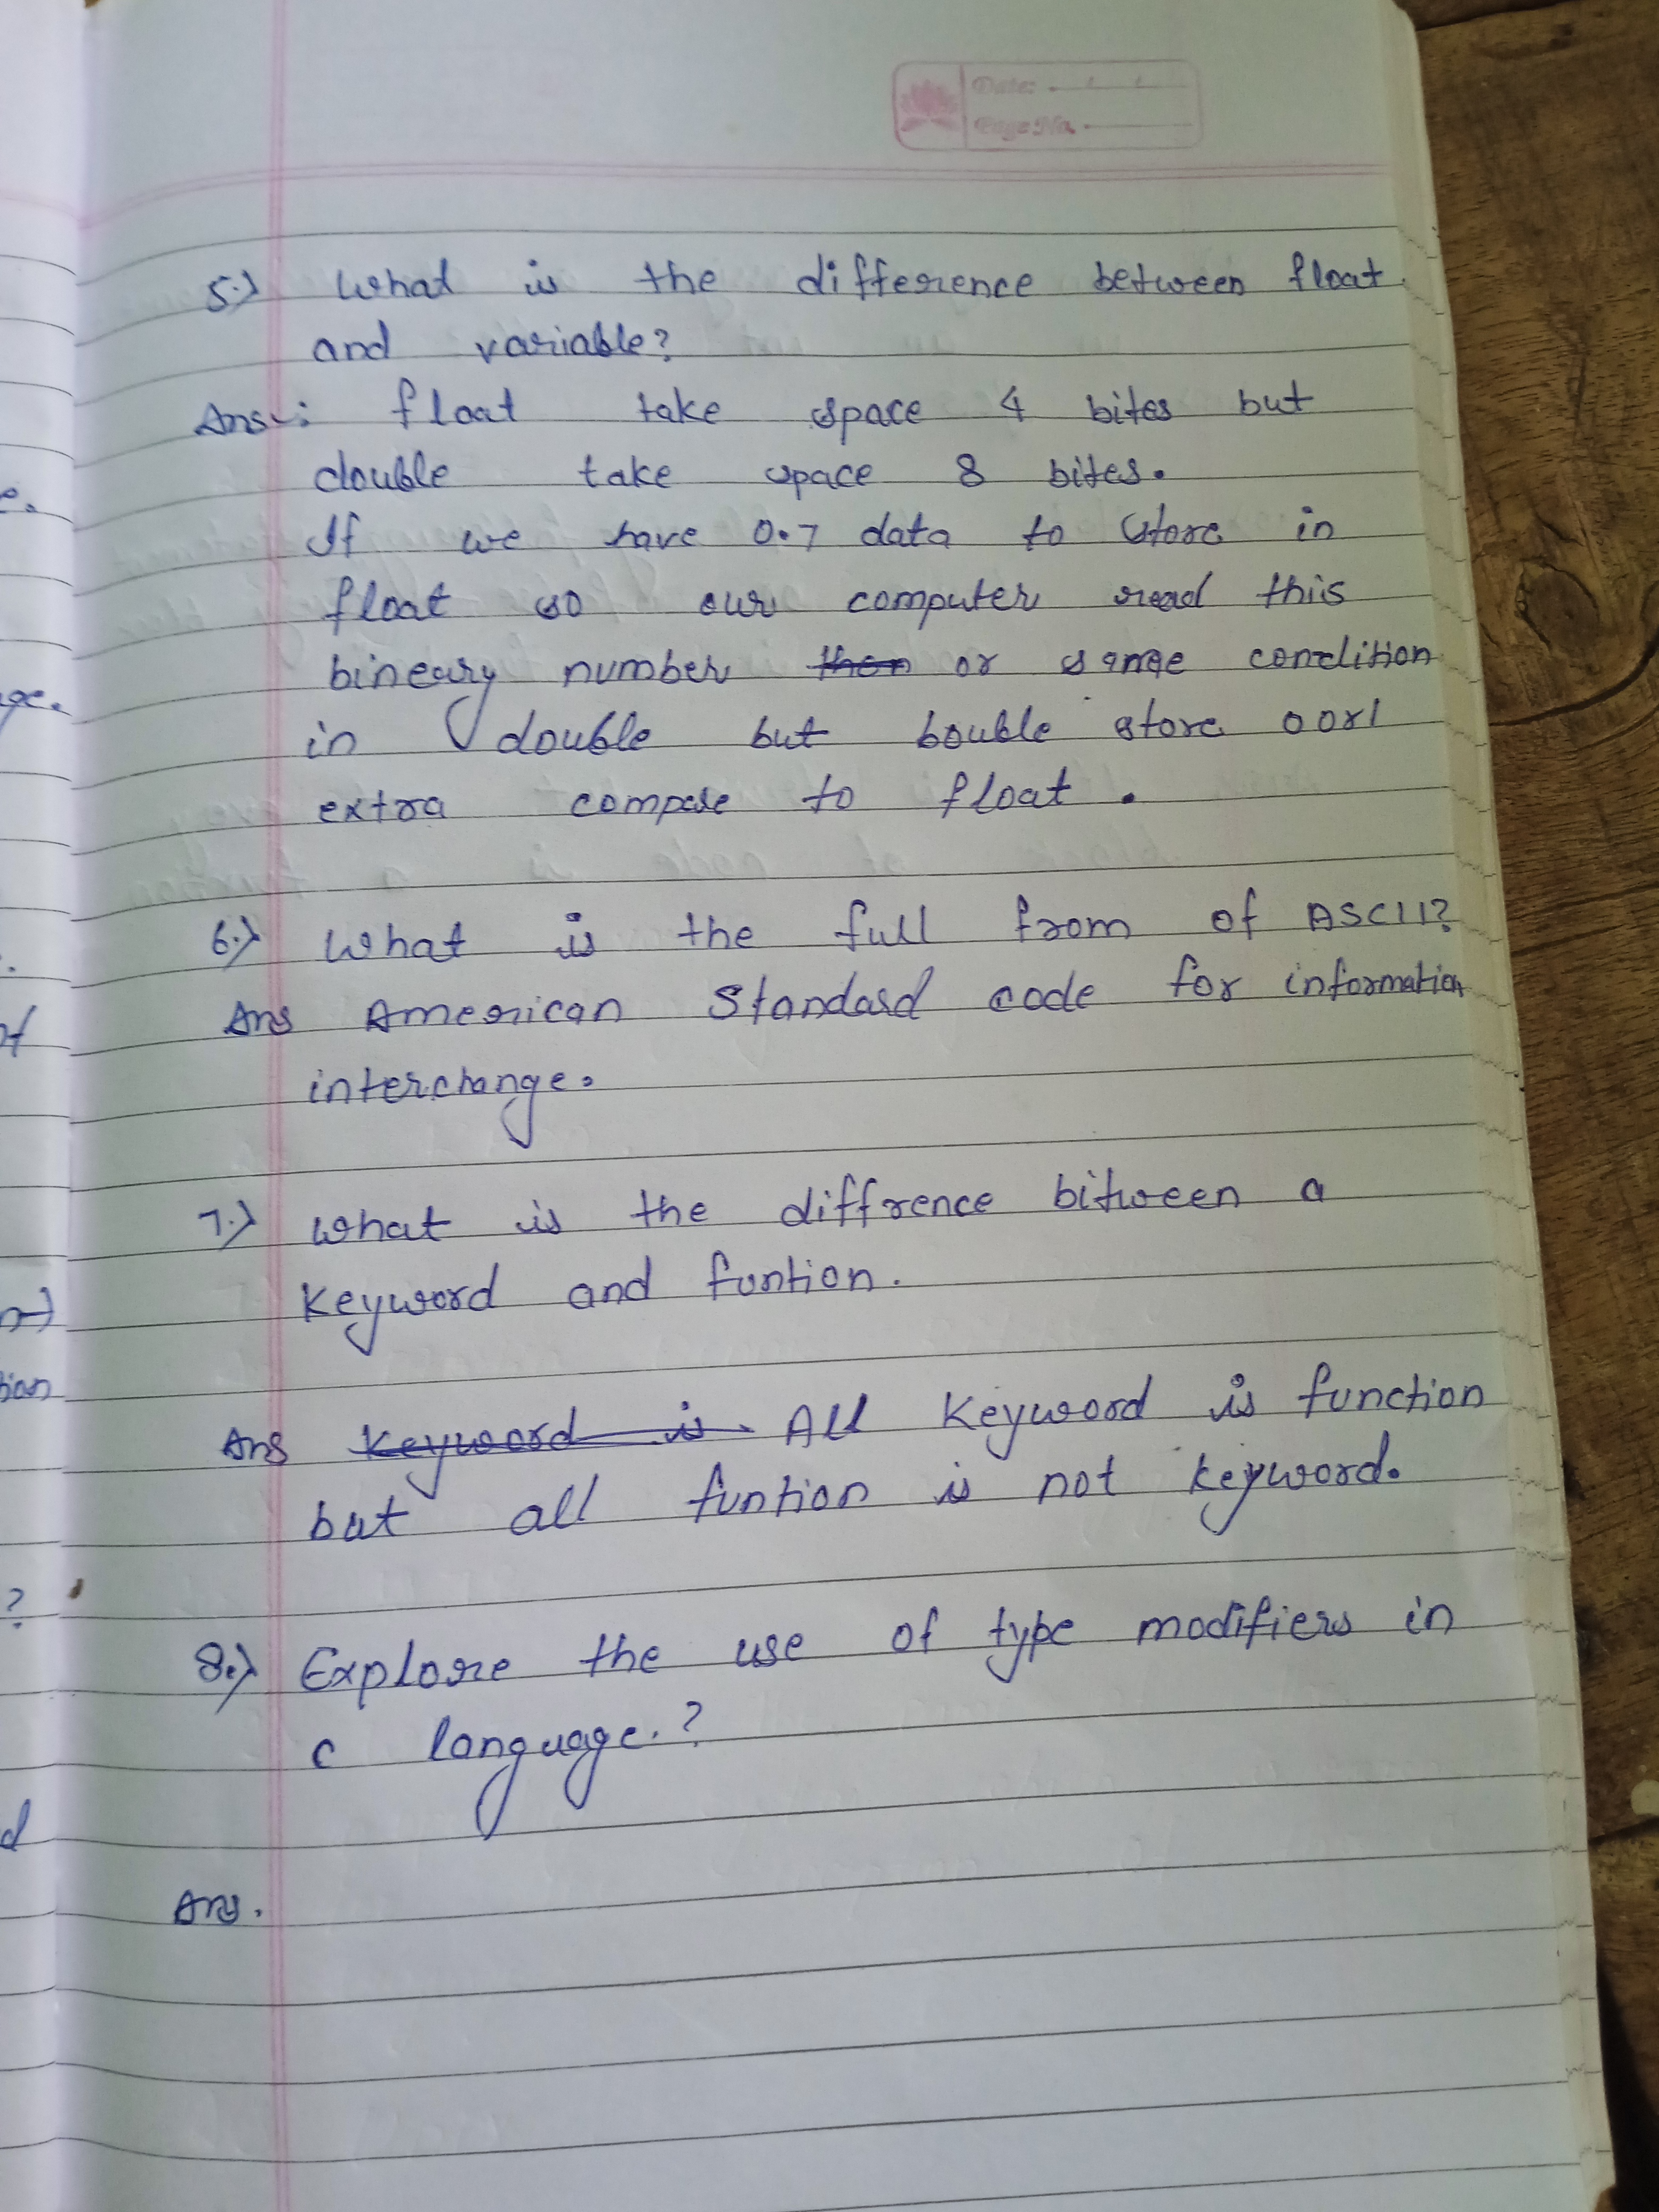 Date:
Page No.
5.) What is the difference between float
and variable?
Ans: float take space 4 bites but
double take space 8 bites.
If we have 0.7 data to store in
float so our computer read this
bineary number then or same condition
in double but bouble store 0 or 1
extra compare to float.
6.) What is the full from of ASCII?
Ans American Standard code for information
interchange.
7.) What is the diffrence bitween a
keyword and funtion.
Ans Keyword is All Keyword is function
but all funtion is not keyword.
8.) Explore the use of type modifiers in
c language.?
Ans.
e.
ge.
?
d